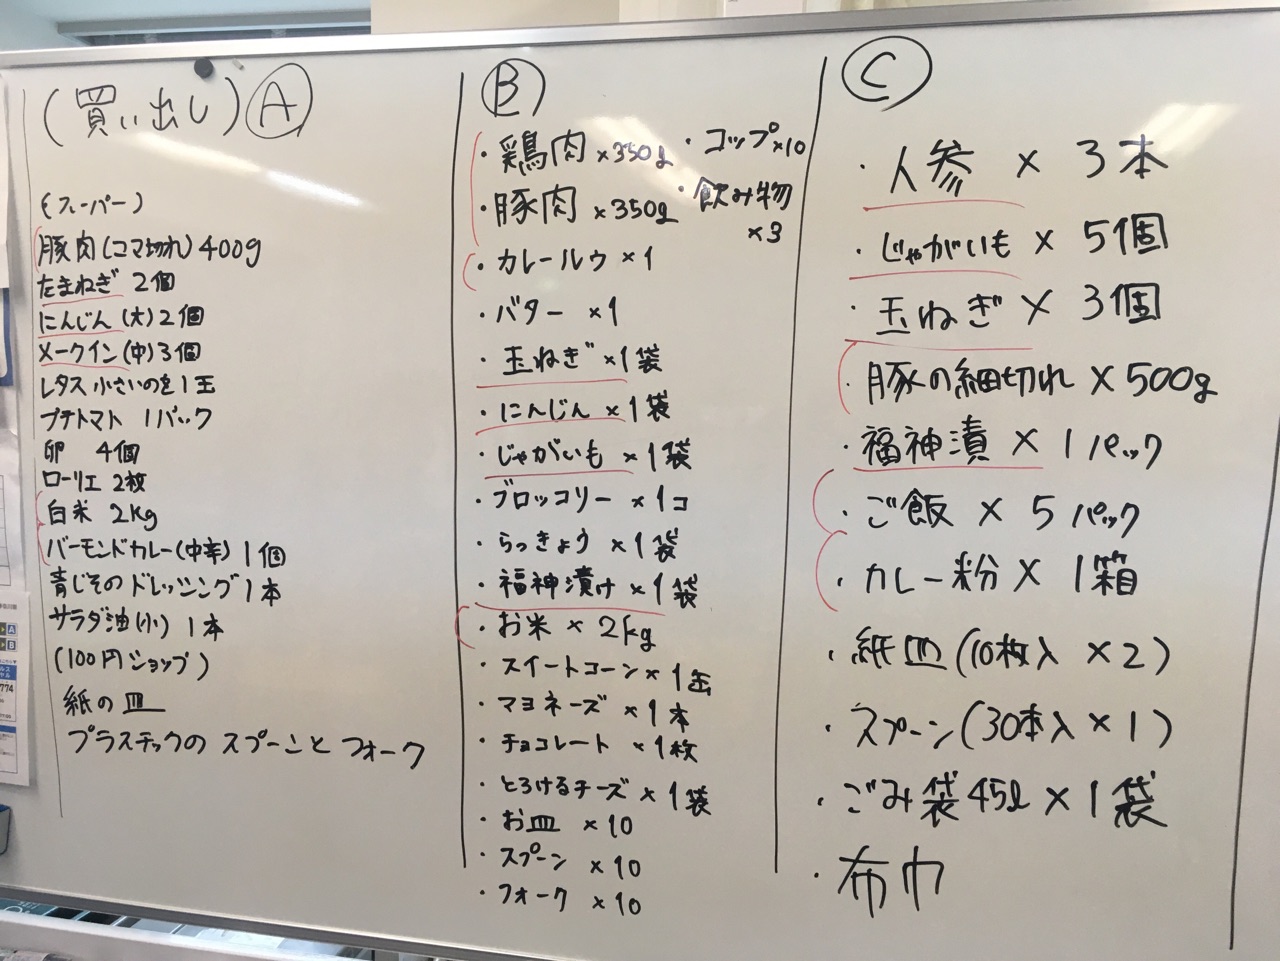 (買い出し) A
(スーパー)
豚肉(コマ切れ)400g
たまねぎ 2個
にんじん(大)2個
メークイン(中)3個
レタス 小さいのを1玉
プチトマト 1パック
卵 4個
ローリエ 2枚
白米 2kg
バーモンドカレー(中辛) 1個
青じそのドレッシング1本
サラダ油(小) 1本
(100円ショップ)
紙の皿
プラスチックの スプーンと フォーク
B
・鶏肉×350g
・豚肉×350g
・カレールゥ×1
・バター ×1
・玉ねぎ×1袋
・にんじん×1袋
・じゃがいも×1袋
・ブロッコリー×1コ
・らっきょう×1袋
・福神漬け×1袋
・お米×2kg
・スイートコーン×1缶
・マヨネーズ×1本
・チョコレート×1枚
・とろけるチーズ×1袋
・お皿 ×10
・スプーン ×10
・フォーク ×10
・コップ×10
・飲み物
×3
C
・人参 × 3本
・じゃがいも × 5個
・玉ねぎ × 3個
・豚の細切れ × 500g
・福神漬 × 1パック
・ご飯 × 5パック
・カレー粉 × 1箱
・紙皿(10枚入 ×2)
・スプーン(30本入×1)
・ごみ袋45ℓ×1袋
・布巾
A
B
774